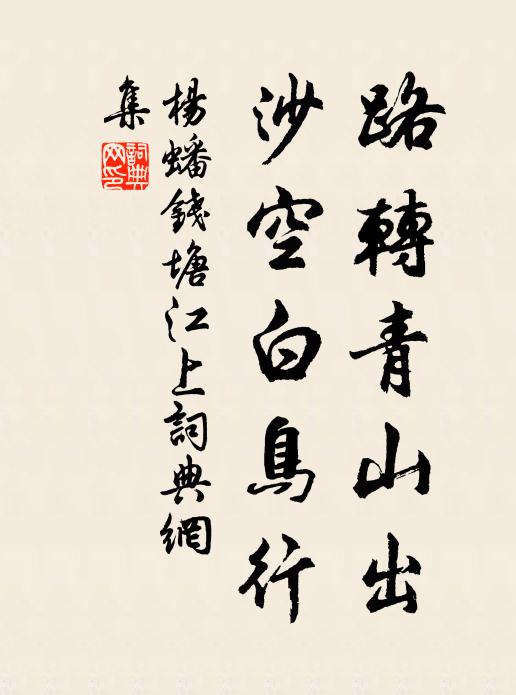 路轉青山出
沙空白鳥行
楊蟠錢塘江上詞典網
集
詞典網印